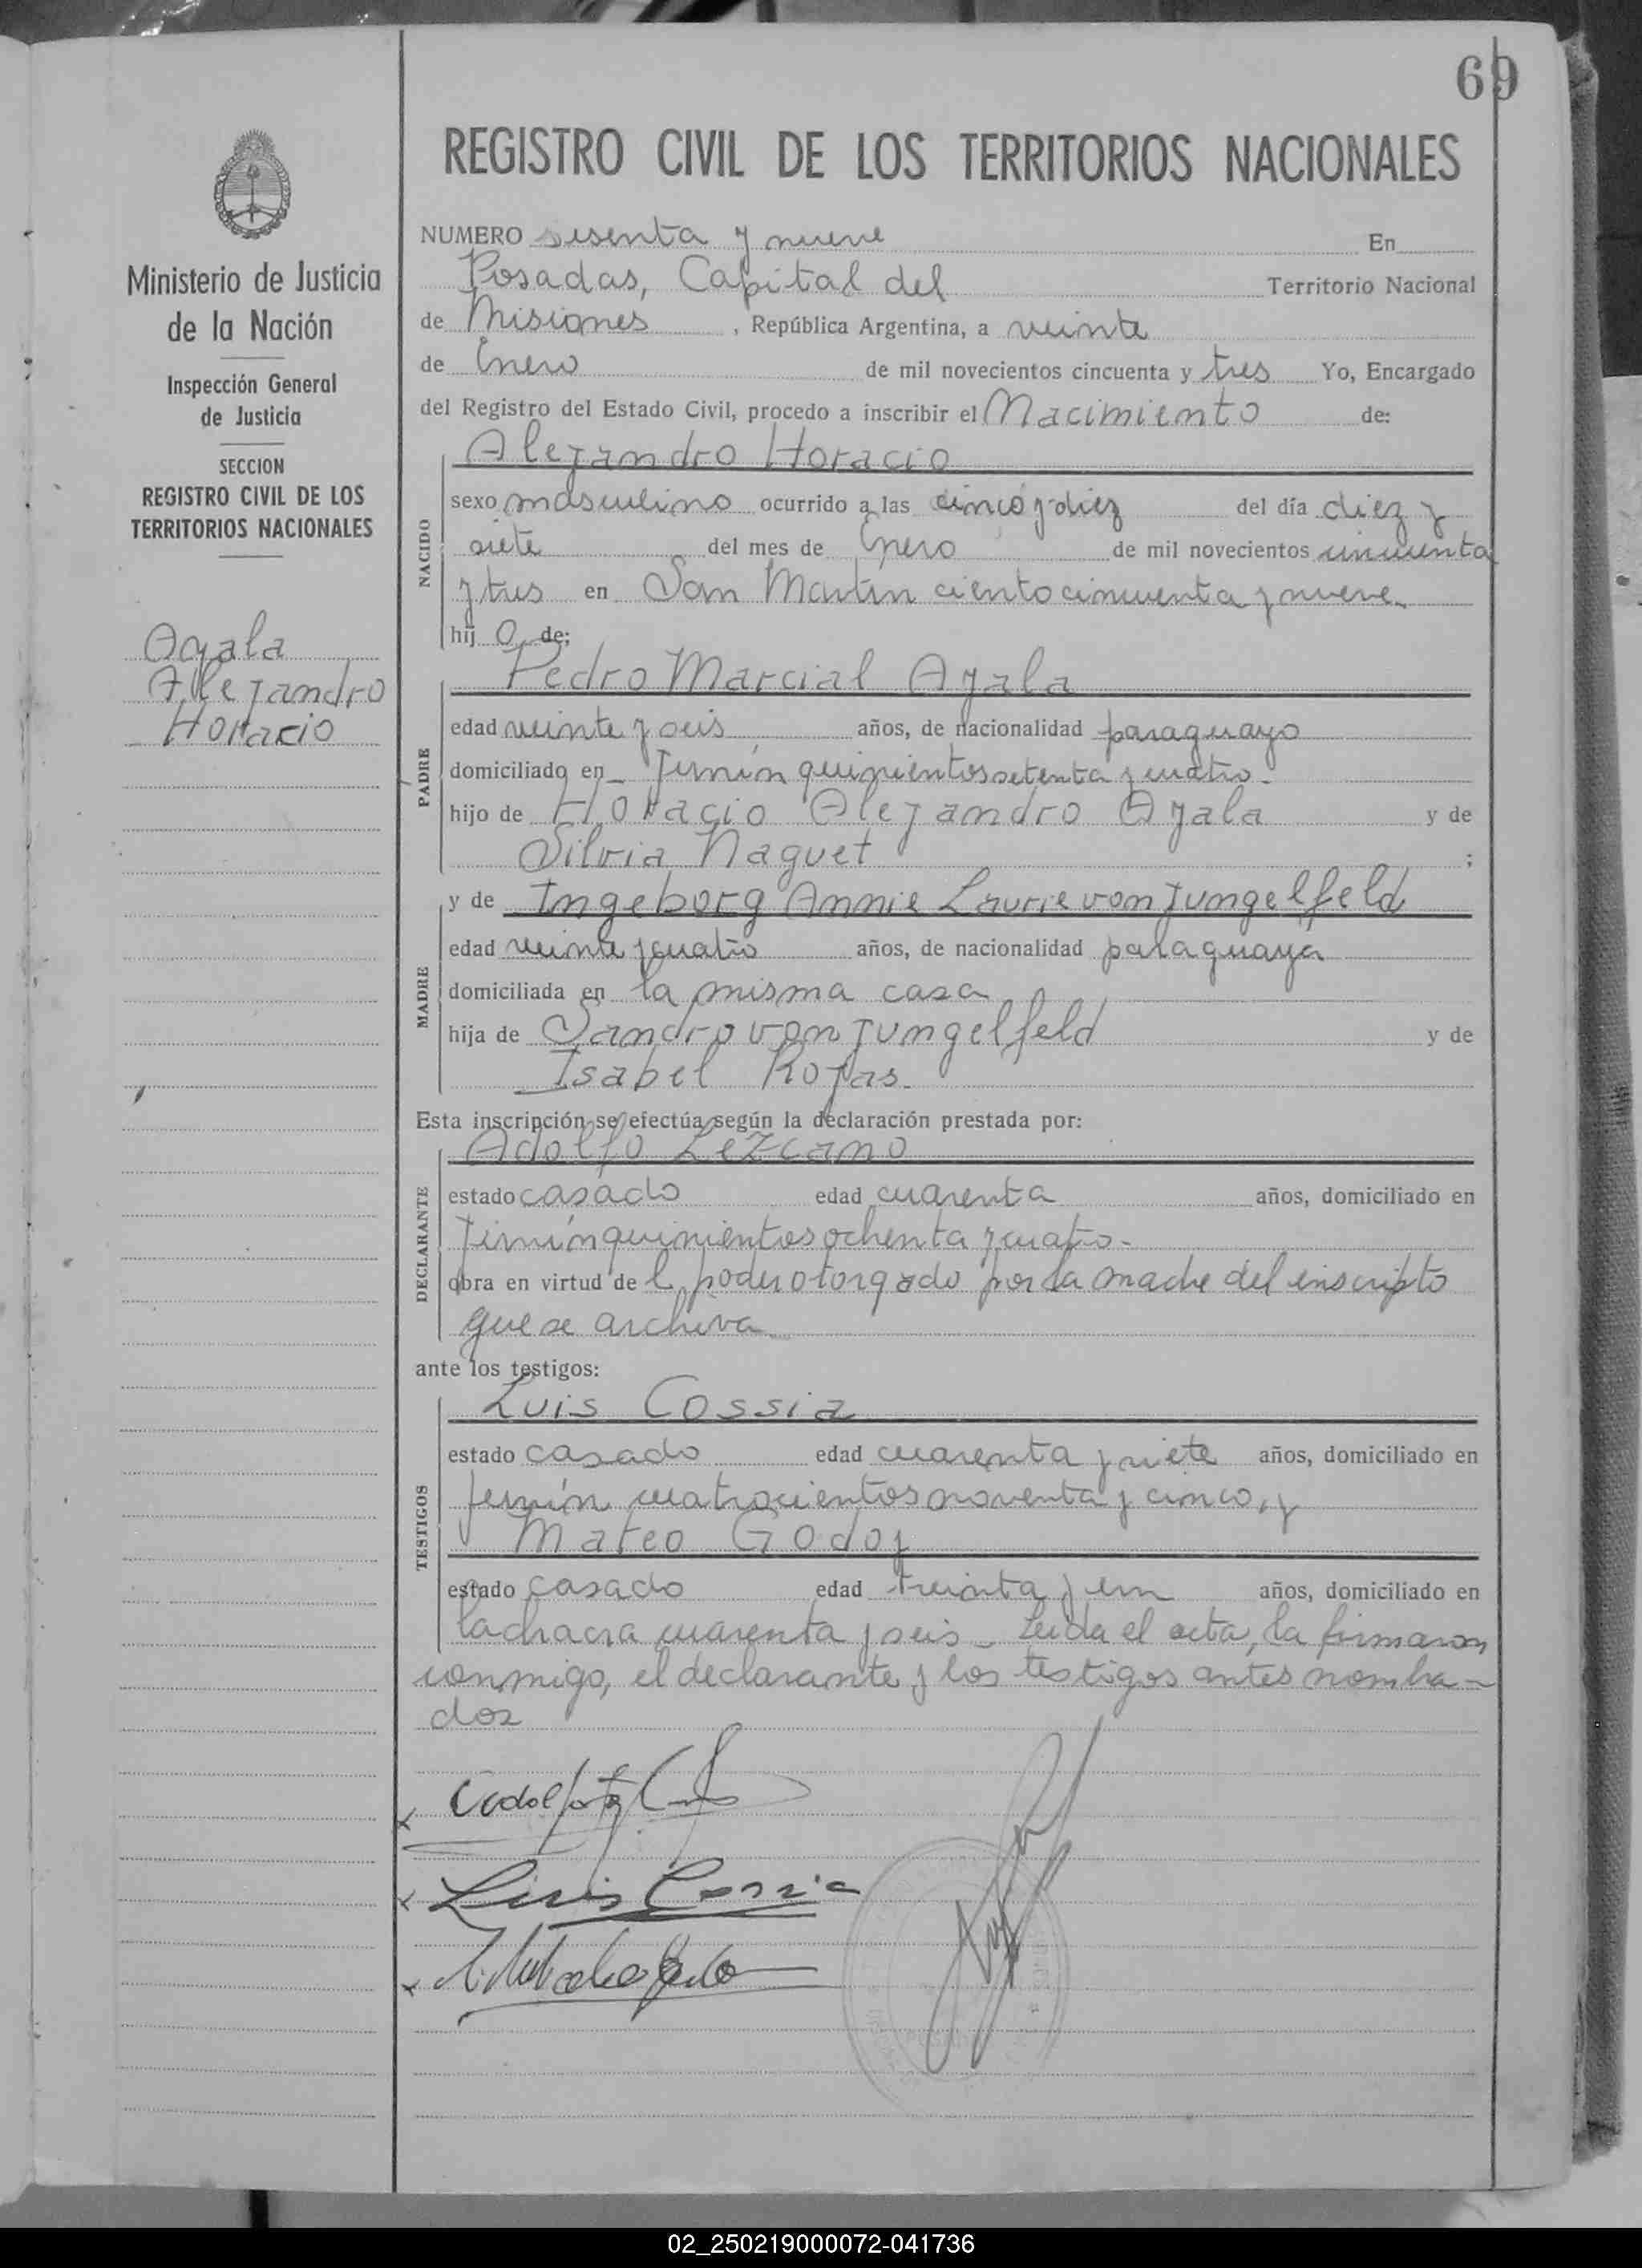 69
REGISTRO CIVIL DE LOS TERRITORIOS NACIONALES
Ministerio de Justicia
de la Nación
Inspección General
de Justicia
SECCION
REGISTRO CIVIL DE LOS
TERRITORIOS NACIONALES
Ayala
Alejandro
Horacio
NUMERO sesenta y nueve En
Posadas, Capital del Territorio Nacional
de Misiones, República Argentina, a veinte
de Enero de mil novecientos cincuenta y tres Yo, Encargado
del Registro del Estado Civil, procedo a inscribir el Nacimiento de:
NACIDO
Alejandro Horacio
sexo masculino ocurrido a las cinco y diez del día diez y
siete del mes de Enero de mil novecientos cincuenta
y tres en San Martín ciento cincuenta y nueve
hij o de:
PADRE
Pedro Marcial Ayala
edad veinte y seis años, de nacionalidad paraguayo
domiciliado en Junín quinientos setenta y cuatro-
hijo de Horacio Alejandro Ayala y de
Silvia Naguet ;
MADRE
y de Ingeborg Annie Laurie von Jungelfeld
edad veinte y cuatro años, de nacionalidad paraguaya
domiciliada en la misma casa
hija de Sandro von Jungelfeld y de
Isabel Rojas.
Esta inscripción se efectúa según la declaración prestada por:
DECLARANTE
Adolfo Lezcano
estado casado edad cuarenta años, domiciliado en
Junín quinientos ochenta y cuatro-
obra en virtud de l poder otorgado por la madre del inscripto
que se archiva
ante los testigos:
TESTIGOS
Luis Cossia
estado casado edad cuarenta y siete años, domiciliado en
Junín cuatrocientos noventa y cinco, y
Mateo Godoy
estado casado edad treinta y un años, domiciliado en
la chacra cuarenta y seis- Leida el acta, la firmaron
conmigo, el declarante y los testigos antes nombra-
dos
Luis Cossia
02_250219000072-041736